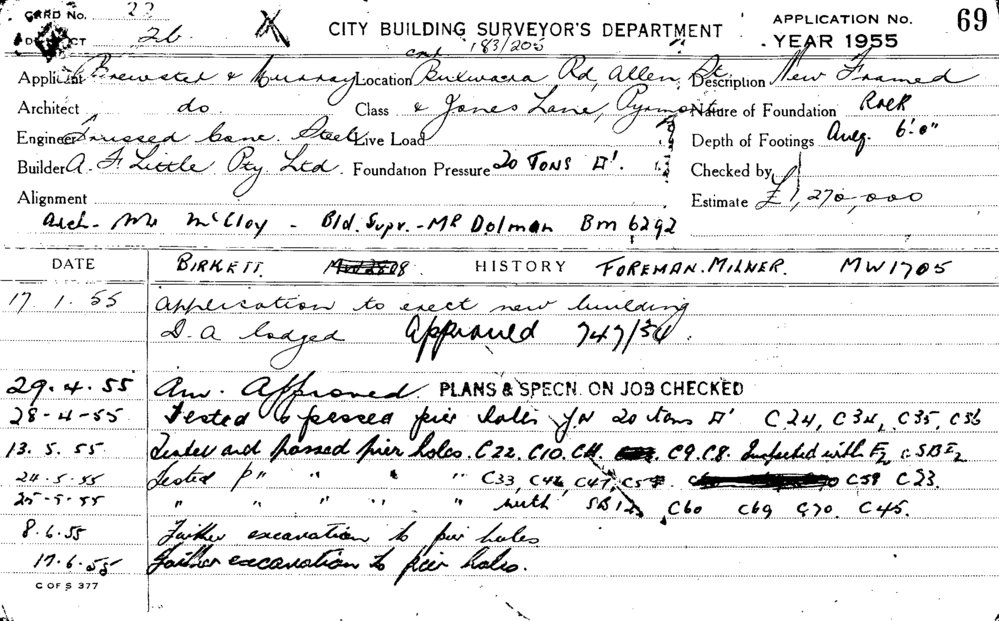 CARD No. 22
26
CITY BUILDING SURVEYOR'S DEPARTMENT
183/205
APPLICATION No. 69
YEAR 1955
Applicant Brewster & Murray Location Bulwara Rd, Allen St Description New Framed
Architect do Class & Jones Lane, Pyrmont Nature of Foundation Rock
Engineer Live Load Depth of Footings Aveg. 6'.0"
Builder A. F Little Pty. Ltd. Foundation Pressure 20 TONS □'. Checked by
Alignment Estimate £1,270,000
Arch - Mr McCloy - Bld. Supr. - MR Dolman BM 6292
DATE BIRKETT. HISTORY FOREMAN. MILNER. MW1705
17.1.55 Application to erect new building
D.A lodged Approved 747/54.
29.4.55 Approved. PLANS & SPECN. ON JOB CHECKED
28-4-55 Tested & passed pier holes 20 tons □' C24, C34, C35, C36
13.5.55 Tested and passed pier holes. C22. C10. C11. C9. C8. Inspected with
24.5.55 Tested p" " " " C33, C42, C47, C58 C23.
25-5-55 " " " " " with SB12 C60 C69 C70. C45.
8.6.55 Further excavation to pier holes
17.6.55 Further excavation to pier holes.
C OF S 377